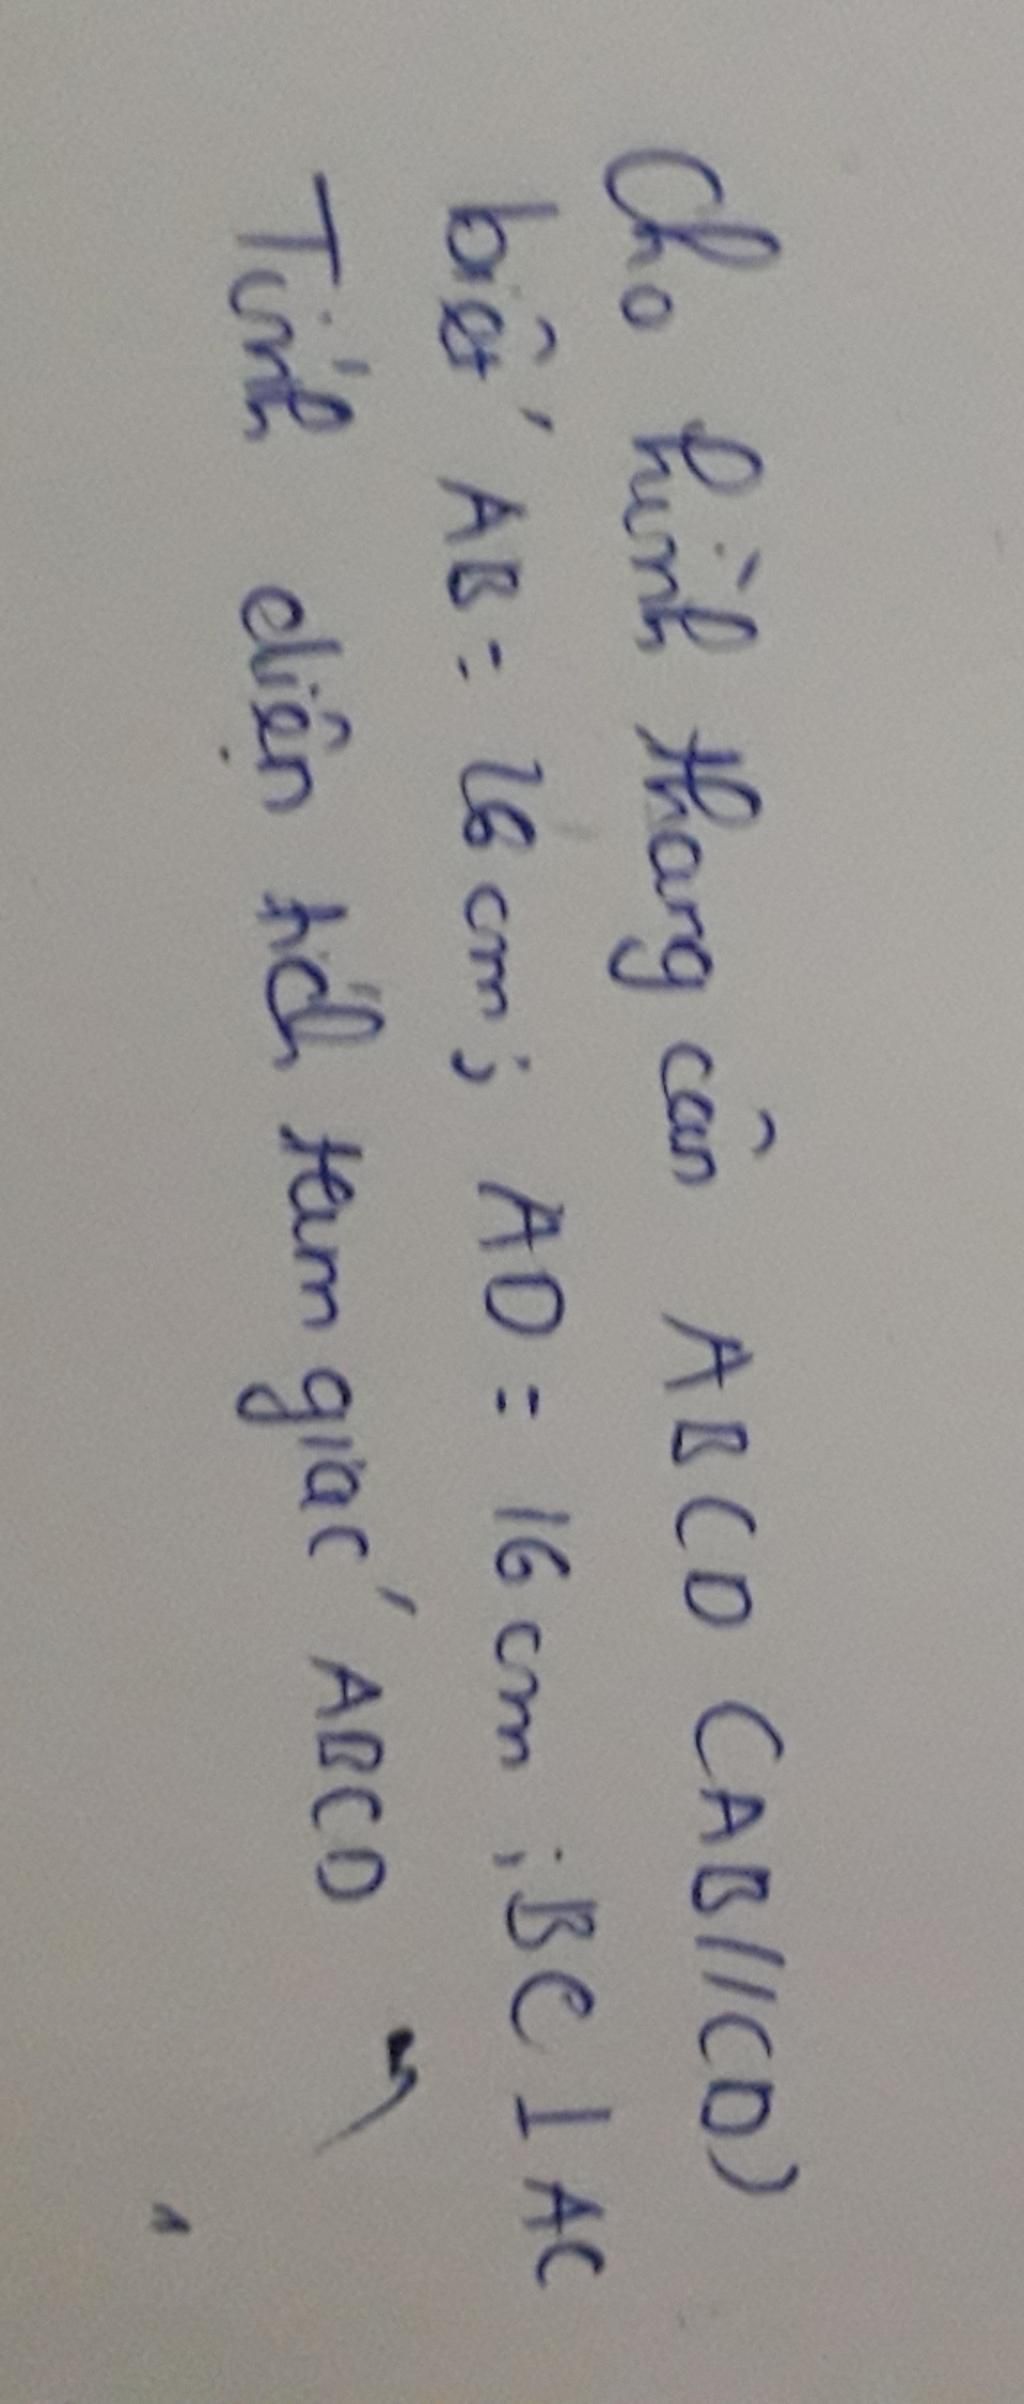 Cho hình thang cân ABCD (AB//CD)
biết AB = 26 cm; AD = 16 cm; BC ⊥ AC
Tính diện tích tam giác ABCD